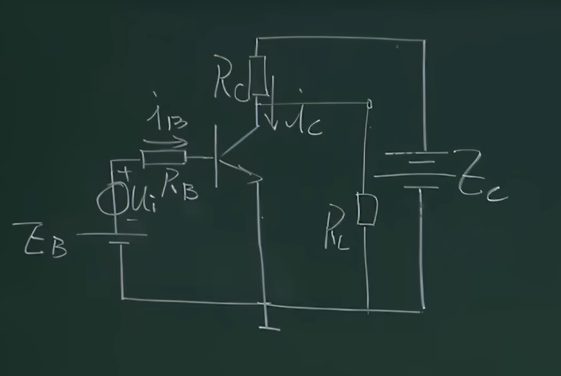 R_C
i_B
i_C
+
u_i
R_B
-
E_B
R_L
E_C